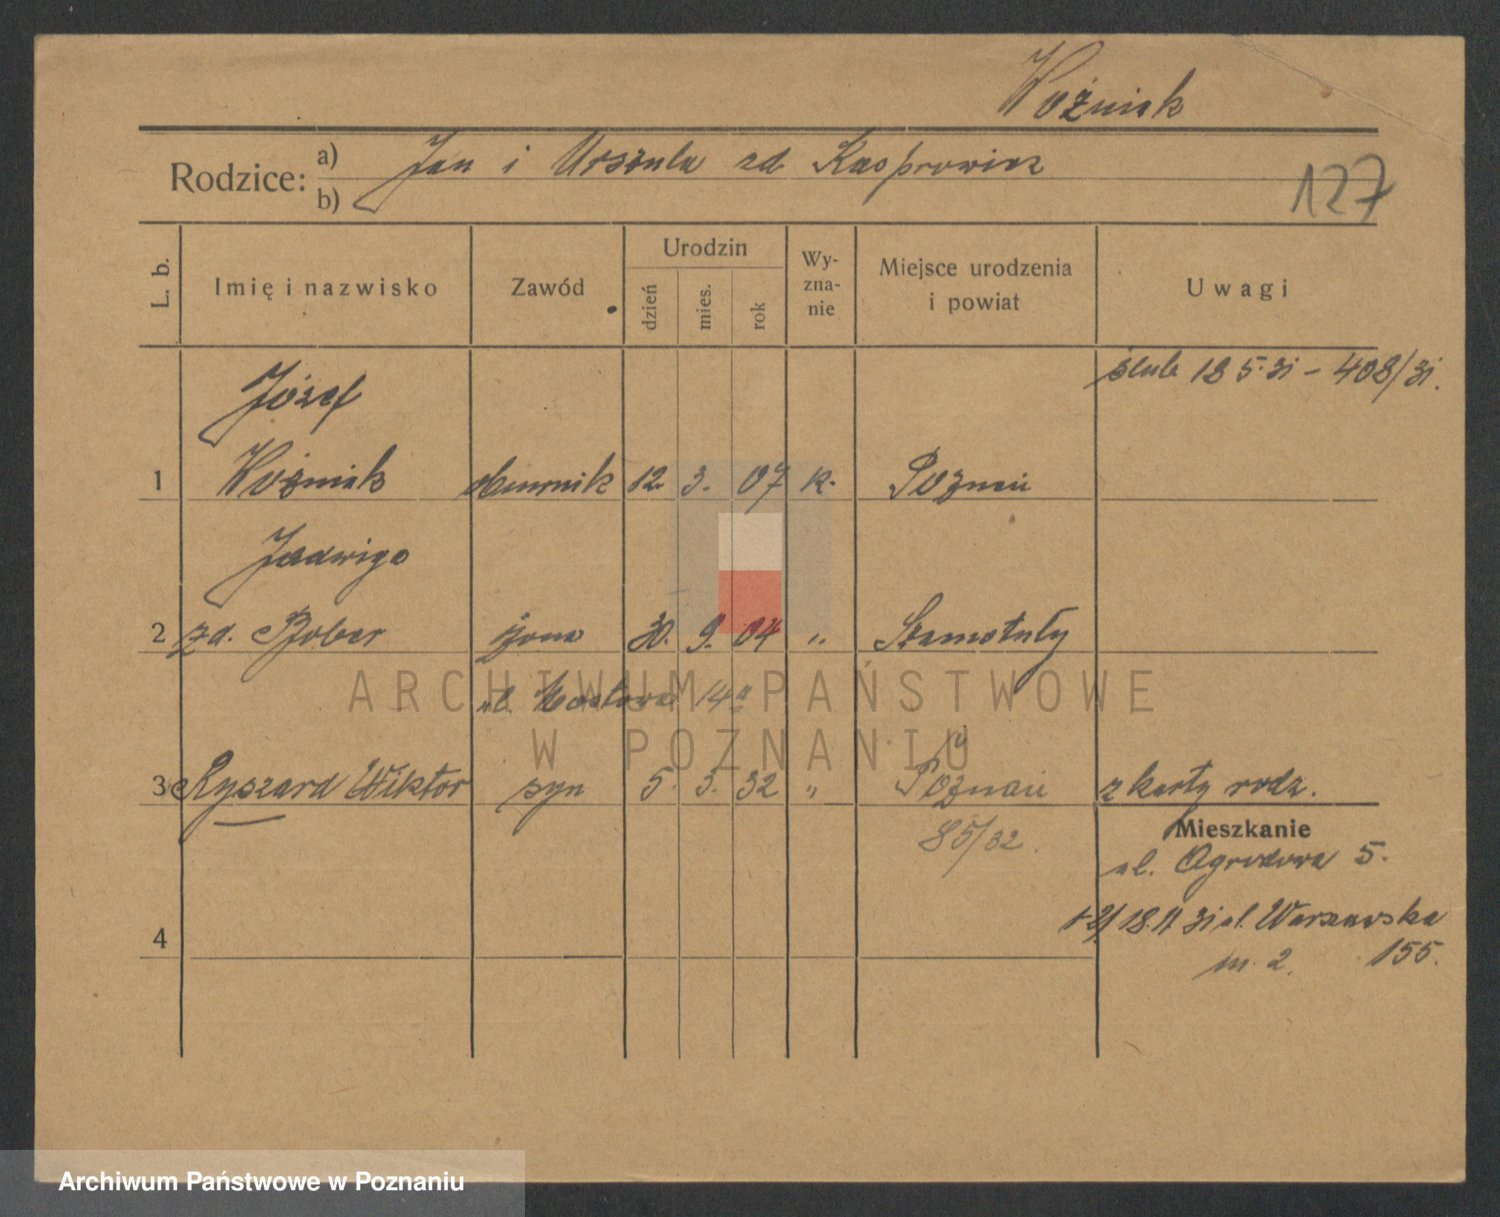 Woźniak
Rodzice: a) Jan i Urszula zd. Kasprowicz
b)
127
L. b. Imię i nazwisko Zawód Urodzin dzień mies. rok Wy-zna-nie Miejsce urodzenia i powiat Uwagi
ślub 18 5. 31 – 408/31.
Józef
1 Woźniak murnik 12. 3. 07 k. Poznań
Jadwiga
2 zd. Bober żona 30. 9. 04 „ Szamotuły
ul. Mostowa 14a
3 Ryszard Wiktor syn 5. 3. 32 „ Poznań z karty rodz.
85/32.
Mieszkanie
ul. Ogrodowa 5.
1-2/ 18.11 31 ul. Warszawska
4
m. 2. 155.
ARCHIWUM PAŃSTWOWE
W POZNANIU
Archiwum Państwowe w Poznaniu